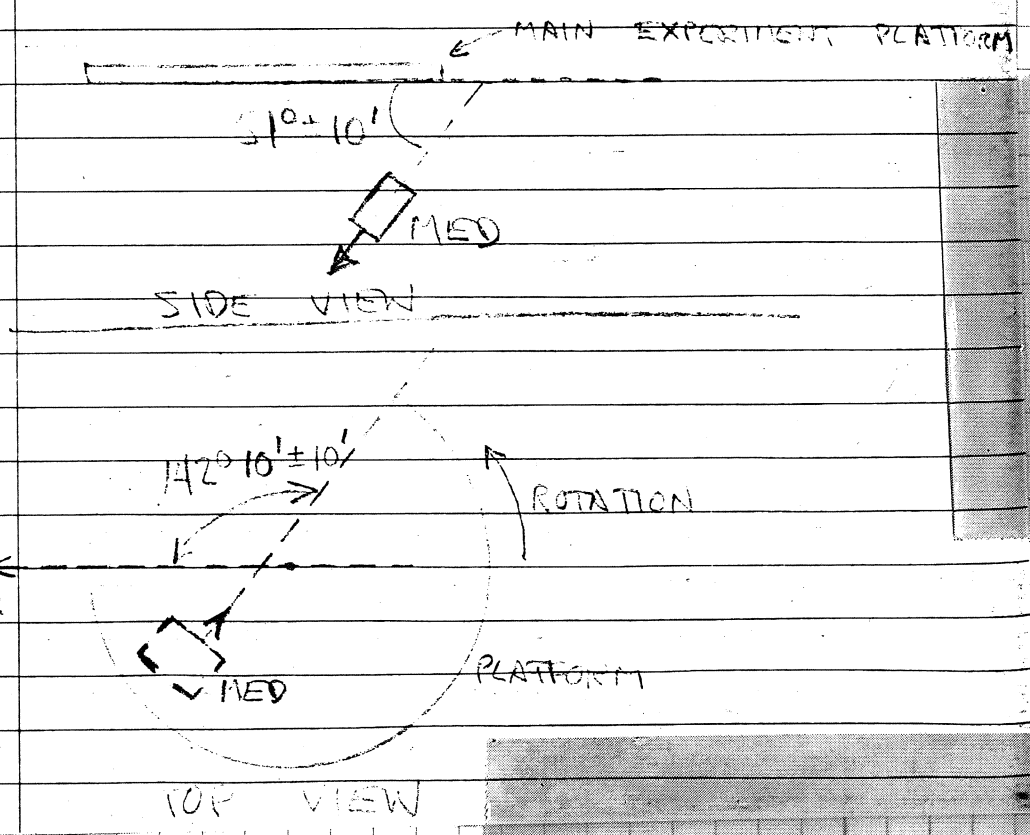 MAIN EXPERIMENT PLATFORM
51°± 10'
MED
SIDE VIEW
142° 10' ± 10'
ROTATION
MED
PLATFORM
TOP VIEW